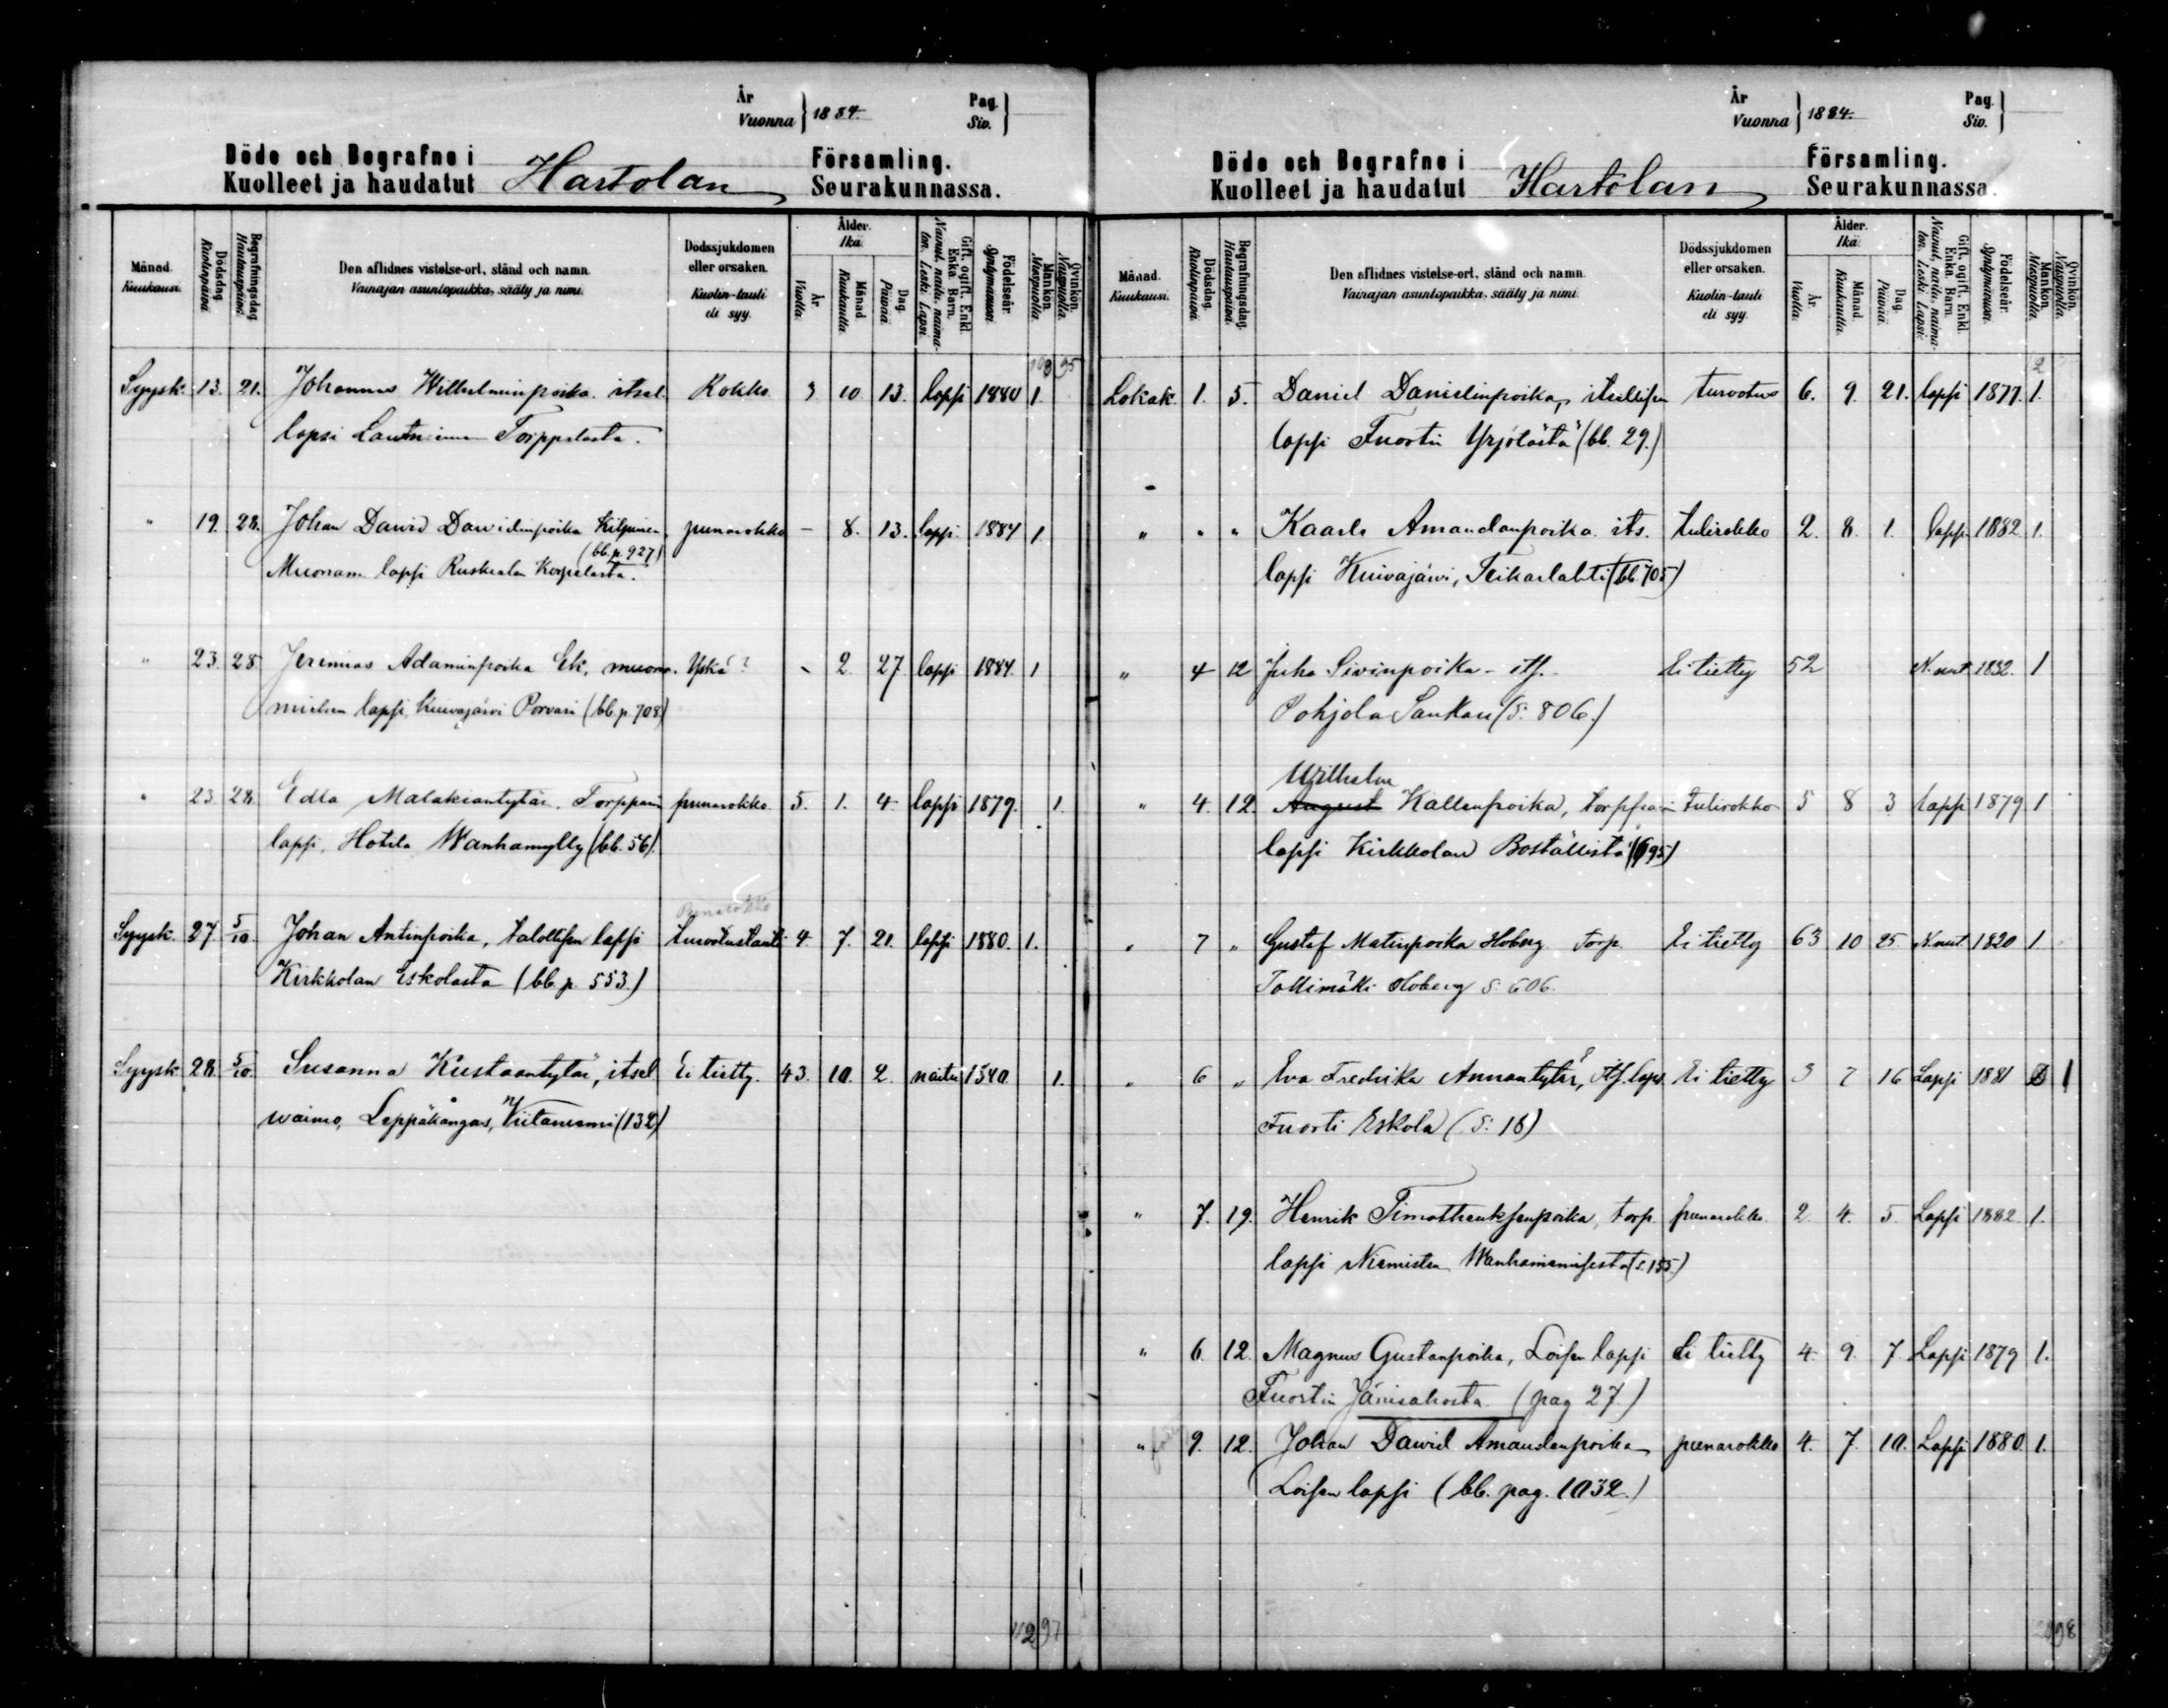 År
Vuonna } 1884.
Pag.
Siv. }
Döde och Begrafne i Hartolan Församling.
Kuolleet ja haudatut Seurakunnassa.
Månad. Kuukausi.
Dödsdag. Kuolinpäivä.
Begrafningsdag. Hautauspäivä.
Den aflidnes vistelse-ort, stånd och namn.
Vainajan asuntopaikka, sääty ja nimi.
Dödssjukdomen eller orsaken.
Kuolin-tauti eli syy.
Ålder. Ikä.
År. Vuotta.
Månad. Kuukautta.
Dag. Päivää.
Gift, ogift, Enkl. Enka Barn.
Nainut, naitu, naimaton. Leski. Lapsi.
Födelseår. Syntymävuosi.
Mankön. Miespuolia.
Qvinkön. Naispuolia.
Syysk. 13. 21. Johannes Wilhelminpoika itsel. Rokko 3 10 13. lapsi 1880 1.
lapsi Torppalasta.
" 19. 28. Johan Dawid Dawidinpoika Kilpinen, punarokko – 8. 13. lapsi 1884 1
(bb. p. 927)
Muonam. lapsi Ruskealan Korpelasta.
" 23. 28 Jeremias Adaminpoika Ek, muona- Yskä? - 2 27 lapsi 1884. 1
miehen lapsi, Kuivajärvi Porvari (bb p 708)
" 23 28. Edla Malakiantytär, Torpparin punarokko 5. 1. 4 lapsi 1879. 1.
lapsi, Hotila Wanhamylly (bb. 56)
Punarokko
Syysk. 27. 5/10 Johan Antinpoika, talollisen lapsi turvotustauti 4 7. 21. lapsi 1880. 1.
Kirkkolan Eskolasta (bb p. 553.)
Syysk. 28. 5/10 Susanna Kustaantytär, itsel Ei tietty. 43. 10. 2. naitu 1840. 1.
waimo, Leppäkangas, Viitaniemi (132)
97
År
Vuonna } 1884.
Pag.
Siv. }
Döde och Begrafne i Hartolan Församling.
Kuolleet ja haudatut Seurakunnassa.
Månad. Kuukausi.
Dödsdag. Kuolinpäivä.
Begrafningsdag. Hautauspäivä.
Den aflidnes vistelse-ort, stånd och namn.
Vainajan asuntopaikka, sääty ja nimi.
Dödssjukdomen eller orsaken.
Kuolin-tauti eli syy.
Ålder. Ikä.
År. Vuotta.
Månad. Kuukautta.
Dag. Päivää.
Gift, ogift, Enkl. Enka Barn.
Nainut, naitu, naimaton. Leski. Lapsi
Födelseår. Syntymävuosi.
Mankön. Miespuolia.
Qvinkön. Naispuolia.
2
Lokak. 1. 5. Daniel Danielinpoika, itsellisen turvotus 6. 9. 21. lapsi 1877. 1.
lapsi Fuortin Yrjölästä (bb. 29.)
" " " Kaarlo Amandanpoika its. tulirokko 2. 8. 1. lapsi 1882 1.
lapsi Kuivajärvi, Teikarlahti (bb 705)
" 4 12 Juha Sivinpoika – its. Ei tietty 52 N. nut 1832. 1
Pohjola Sankari (S. 806.)
Wilhelm
" 4. 12. August Kallenpoika, torpparin tulirokko 5 8 3 lapsi 1879 1
lapsi Kirkkolan Boställistä (695)
" 7 " Gustaf Matinpoika Hoberg Torp. Ei tietty 63 10 25 N. nut 1820 1
Tollimäki Hoberg S. 606.
" 6 " Eva Fredrika Annantytär, Its. laps. Ei tietty 3 7 16 Lapsi 1881 1
Fuorti Eskola (S. 18)
" 7. 19. Henrik Timotheuksenpoika, torp. punarokko 2. 4. 5. Lapsi 1882 1.
lapsi Niemisten (s. 155.)
" 6. 12. Magnus Gustanpoika, Loisen lapsi Ei tietty 4. 9. 7 Lapsi 1879 1.
Fuortin Jänisahosta (pag 27.)
" 9. 12. Johan Dawid Amandanpoika punarokko 4. 7. 10. Lapsi 1880 1.
Loisen lapsi (bb. pag. 1032.)
98